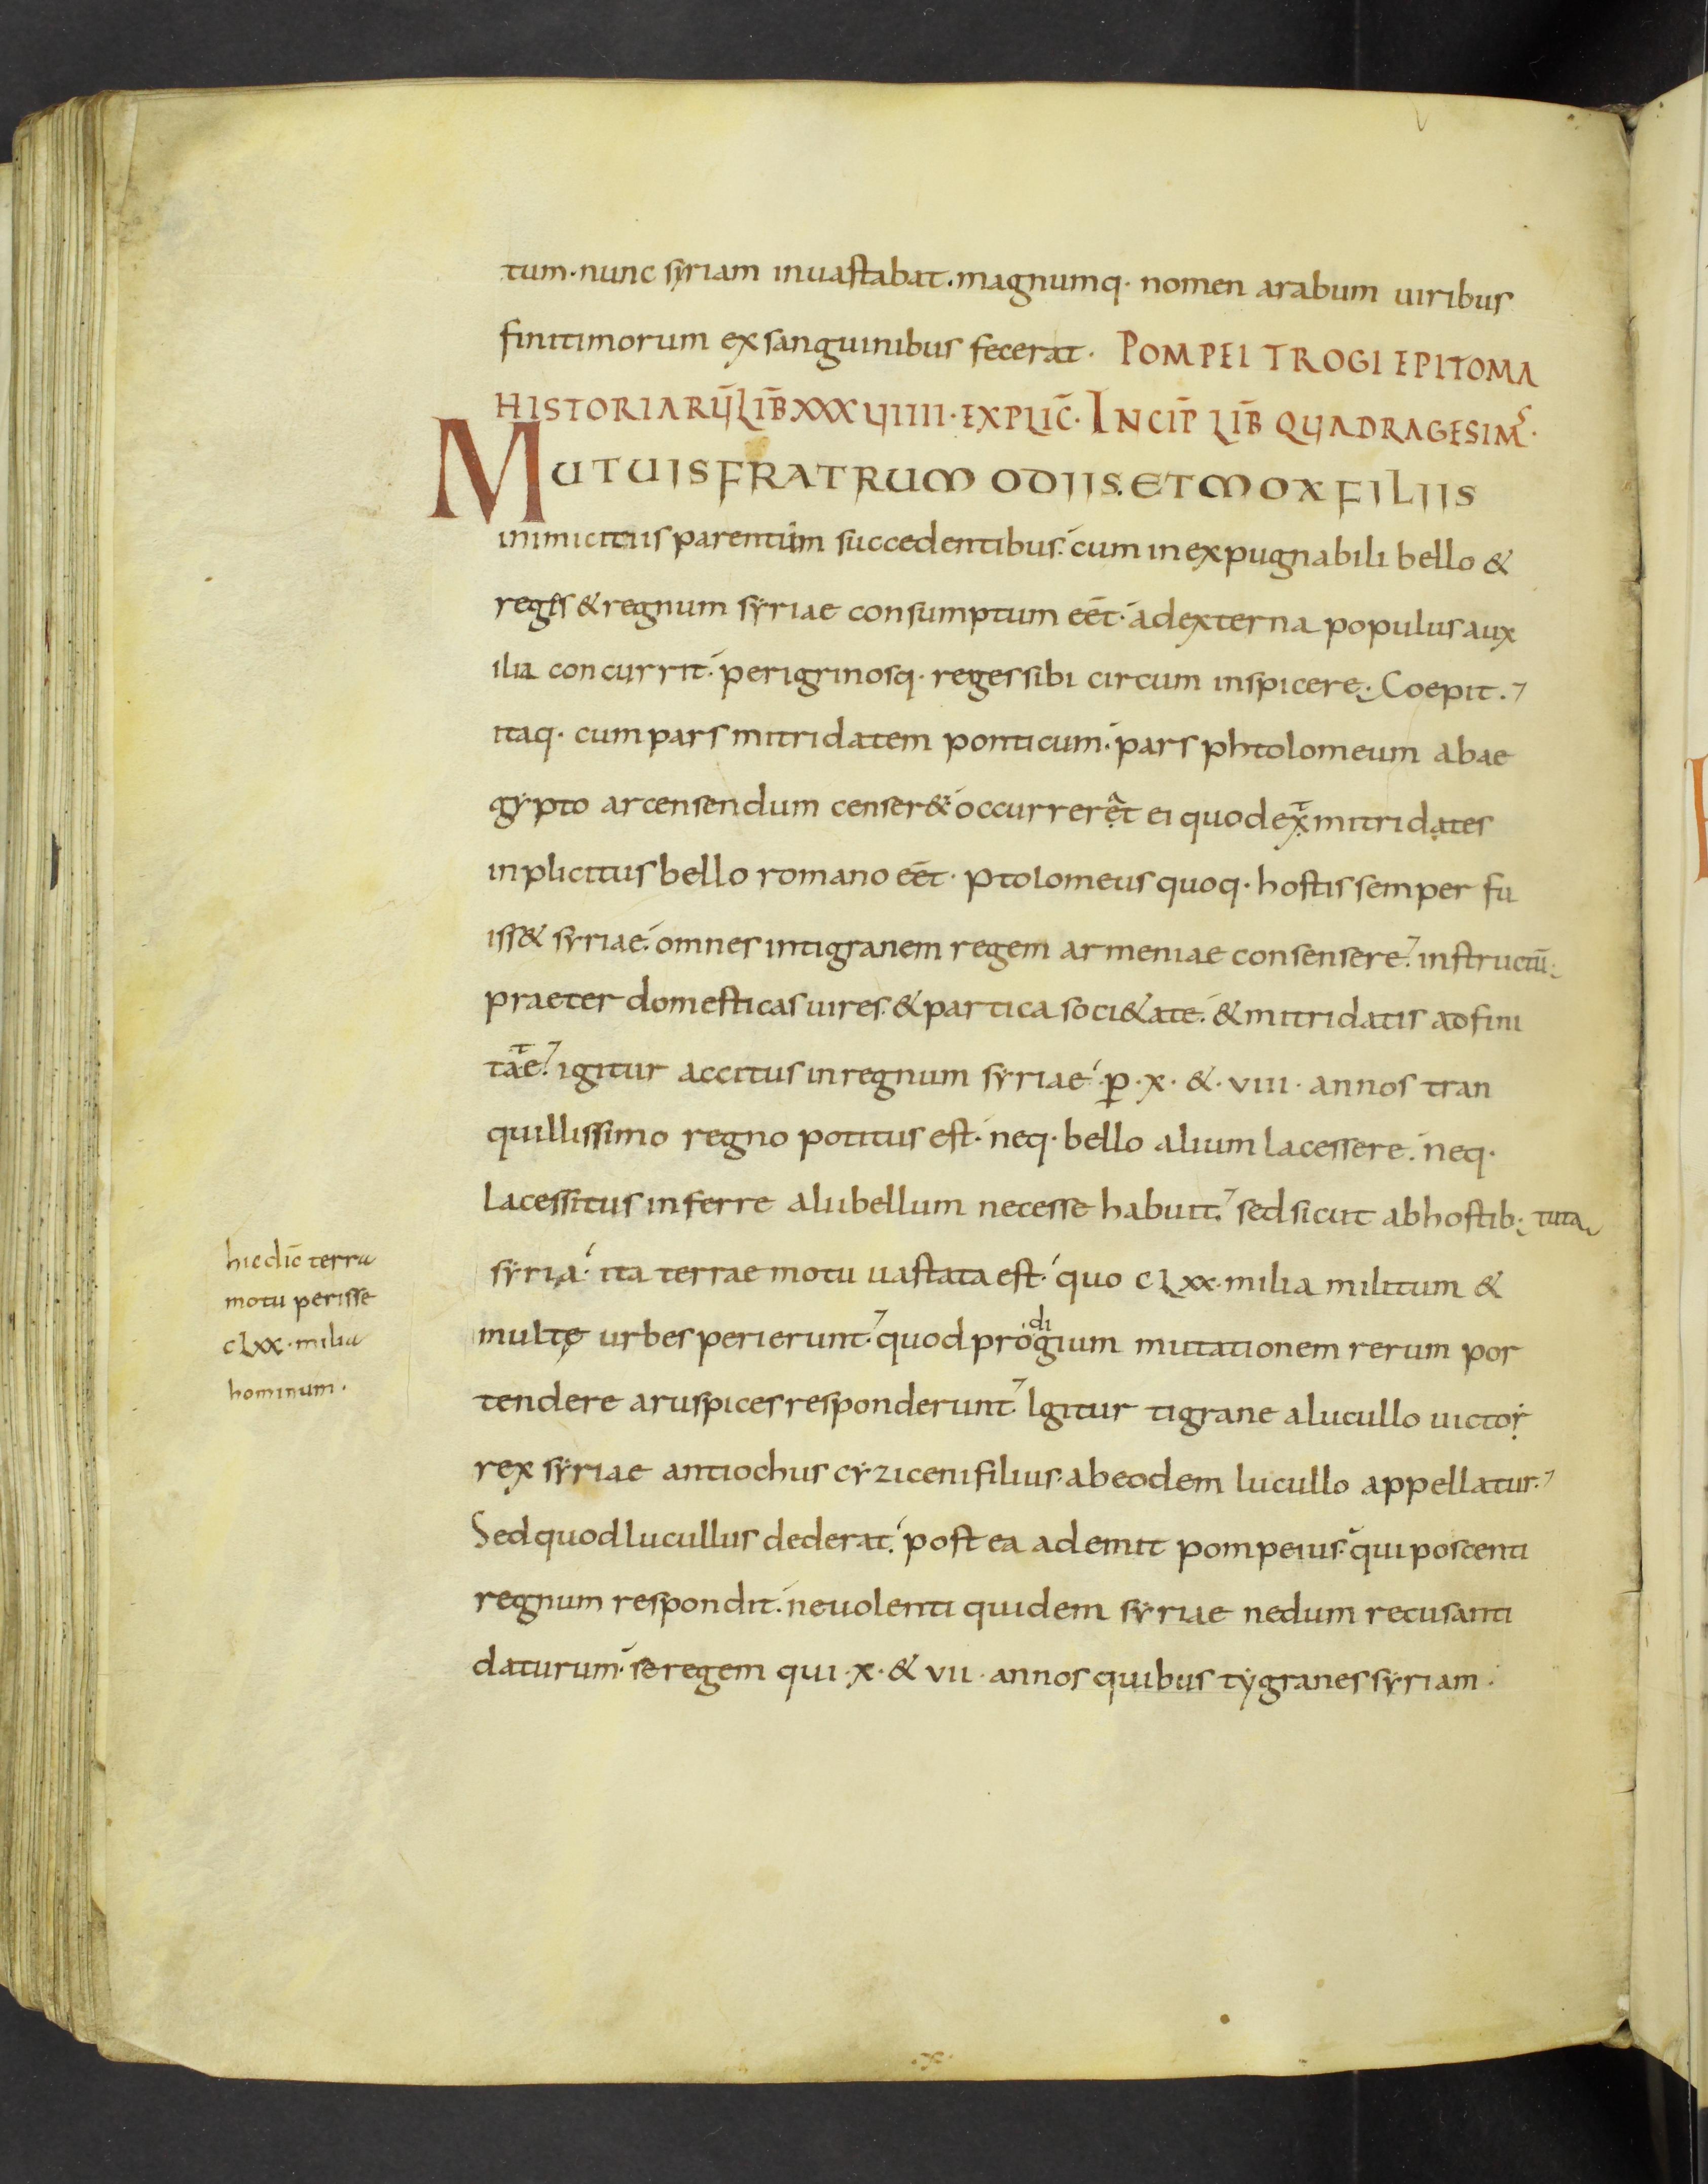 tum · nunc syriam inuastabat . magnumq · nomen arabum uiribus
finitimorum exsanguinibus fecerat · POMPEI TROGI EPITOMA
HISTORIARŪ LIB̄ XXXVIIII · EXPLIC̄ · INCIP̄ LIB̄ QUADRAGESIMꝰ ·
MUTUIS FRATRUM ODIIS . ET MOX FILIIS
inimicitiis parentum succedentibus . cum inexpugnabili bello &
reges & regnum syriae consumptum eēt · ad externa populus aux
ilia concurrit . perigrinosq · reges sibi circum inspicere . Coepit .
itaq · cum pars mitridatem ponticum · pars phtolomeum abae
gypto arcensendum censer& occurrerẹat ei quod ex̣t mitridates
inplicitus bello romano eēt · ptolomeus quoq · hostis semper fu
iss& syriae . omnes intigranem regem armeniae consensere . instructū
praeter domesticas uires . & partica soci&ate . & mitridatis adfini
tate . igitur accitus inregnum syriae · ꝑ · x · & · viii · annos tran
quillissimo regno potitus est · neq · bello alium lacessere . neq ·
Lacessitus inferre alii bellum necesse habuit . sed sicut abhostib; tuta
syria · ita terrae motu uastata est · quo cLxx · milia militum &
multę urbes perierunt . quod prodigium mutationem rerum por
tendere aruspices responderunt . Igitur tigrane alucullo uictoṛ
rex syriae antiochus cyziceni filius · abeodem lucullo appellatur .
Sed quod lucullus dederat . post ea ademit pompeius · qui poscenti
regnum respondit . neuolenti quidem syriae nedum recusanti
daturum · se regem qui · x · & vii · annos quibus tygranes syriam ·
hic dic̄ terra
motu perisse
cLxx · milia
hominum ·
· x ·